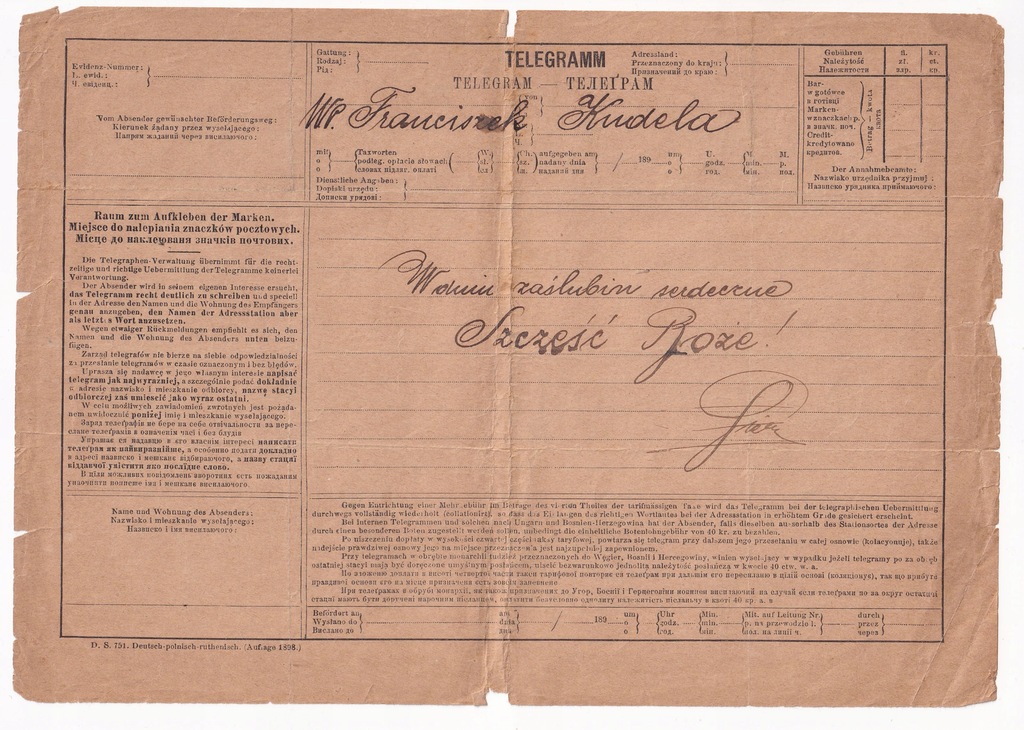 Evidenz-Nummer:
L. ewid.:
Ч. евіденц.:
Vom Absender gewünschter Beförderungsweg:
Kierunek żądany przez wysełającego:
Напрям жаданий через висилаючого:
Gattung:
Rodzaj:
Рід:
TELEGRAMM
TELEGRAM — ТЕЛЕҐРАМ
Adressland:
Przeznaczony do kraju:
Призначений до краю:
WP. Franciszek Kudela
mit Taxworten
o podleg. opłacie słowach
о словах підляг. оплаті
aufgegeben am
nadany dnia
наданий дня
/ 189
um
o
о
U. M. M.
godz. min. p.
год. мін. пол.
Dienstliche Angaben:
Dopiski urzędu:
Дописки урядові:
Gebühren fl. kr.
Należytość zł. ct.
Належитости зар. кр.
Bar-
w gotówce
в готівці
Marken-
w znaczkach p.
в значк. поч.
Credit-
kredytowano
кредитов.
Betrag — kwota
квота
Der Annahmebeamte:
Nazwisko urzędnika przyjmuj.:
Назвиско урядника приймаючого:
Raum zum Aufkleben der Marken.
Miejsce do nalepiania znaczków pocztowych.
Місце до наклеюваня значків почтових.
Die Telegraphen-Verwaltung übernimmt für die recht-
zeitige und richtige Uebermittlung der Telegramme keinerlei
Verantwortung.
Der Absender wird in seinem eigenen Interesse ersucht,
das Telegramm recht deutlich zu schreiben und speciell
in der Adresse den Namen und die Wohnung des Empfängers
genau anzugeben, den Namen der Adressstation aber
als letztes Wort anzusetzen.
Wegen etwaiger Rückmeldungen empfiehlt es sich, den
Namen und die Wohnung des Absenders unten beizu-
fügen.
Zarząd telegrafów nie bierze na siebie odpowiedzialności
za przesłanie telegramów w czasie oznaczonym i bez błędów.
Uprasza się nadawcę w jego własnym interesie napisać
telegram jak najwyraźniej, a szczególnie podać dokładnie
w adresie nazwisko i mieszkanie odbiorcy, nazwę stacyi
odbiorczej zaś umieścić jako wyraz ostatni.
W celu możliwych zawiadomień zwrotnych jest pożąda-
nem uwidocznić poniżej imię i mieszkanie wysełającego.
Заряд телєґрафів не бере на себе отвічальности за пере-
сланє телєґрамів в означенім часі і без блудів
Упрашає ся надавцю в єго власнім інтересі написати
телєґрам як найвиразнійше, а особенно подати докладно
в адресі назвиско і мешканє відбираючого, а назву стациї
віддавчої умістити яко послїдне слово.
В цїли можливих повідомлень зворотних єсть пожаданим
увидочнити понизше імя і мешканє висилаючого.
W dniu zaślubin serdeczne
Szczęść Boże!
Name und Wohnung des Absenders:
Nazwisko i mieszkanie wysełającego:
Назвиско і імя висилаючого:
Gegen Entrichtung einer Mehrgebühr im Betrage des vierten Theiles der tarifmässigen Taxe wird das Telegramm bei der telegraphischen Uebermittlung
durchwegs vollständig wiederholt (collationirt), so dass das Einlangen des richtigen Wortlautes bei der Adressstation in erhöhtem Grade gesichert erscheint.
Bei internen Telegrammen und solchen nach Ungarn und Bosnien-Herzegowina hat der Absender, falls dieselben ausserhalb des Stationsortes der Adresse
durch einen besonderen Boten zugestellt werden sollen, unbedingt die einheitliche Botenlohngebühr von 40 kr. zu bezahlen.
Po uiszczeniu dopłaty w wysokości czwartej części taksy taryfowej, powtarza się telegram przy dalszem jego przesełaniu w całej osnowie (kolacyonuje), także
nadejście prawdziwej osnowy jego na miejsce przeznaczenia jest najzupełniej zapewnionem.
Przy telegramach w obrębie monarchii tudzież przeznaczonych do Węgier, Bosnii i Hercegowiny, winien wysełający w wypadku jeżeli telegramy po za obręb
ostatniej stacyi mają być doręczone umyślnym posłańcem, uiścić bezwarunkowo jednolitą należytość posłańczą w kwocie 40 ctw. w. a.
Befördert an
Wysłano do
Вислано до
am
dnia
дня
/ 189
um
o
о
Uhr Min.
godz. min.
год. мін.
Mit. auf Leitung Nr.
p. na przewodzie l.
пол. на линії ч.
durch
przez
через
D. S. 751. Deutsch-polnisch-ruthenisch. (Auflage 1898.)